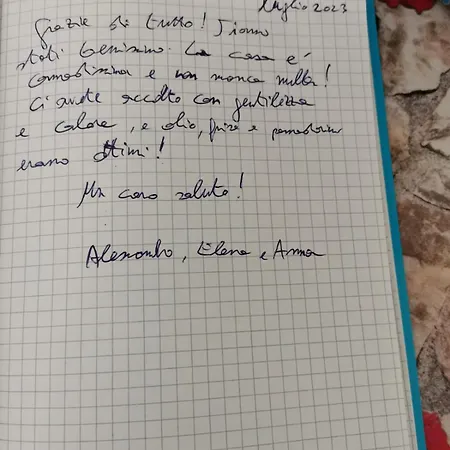 Luglio 2023
Grazie di tutto! Siamo
stati benissimo. La casa è
comodissima e non manca nulla!
Ci avete accolto con gentilezza
e calore, e olio, frise e pomodorini
erano ottimi!
Un caro saluto!
Alessandro, Elena e Anna